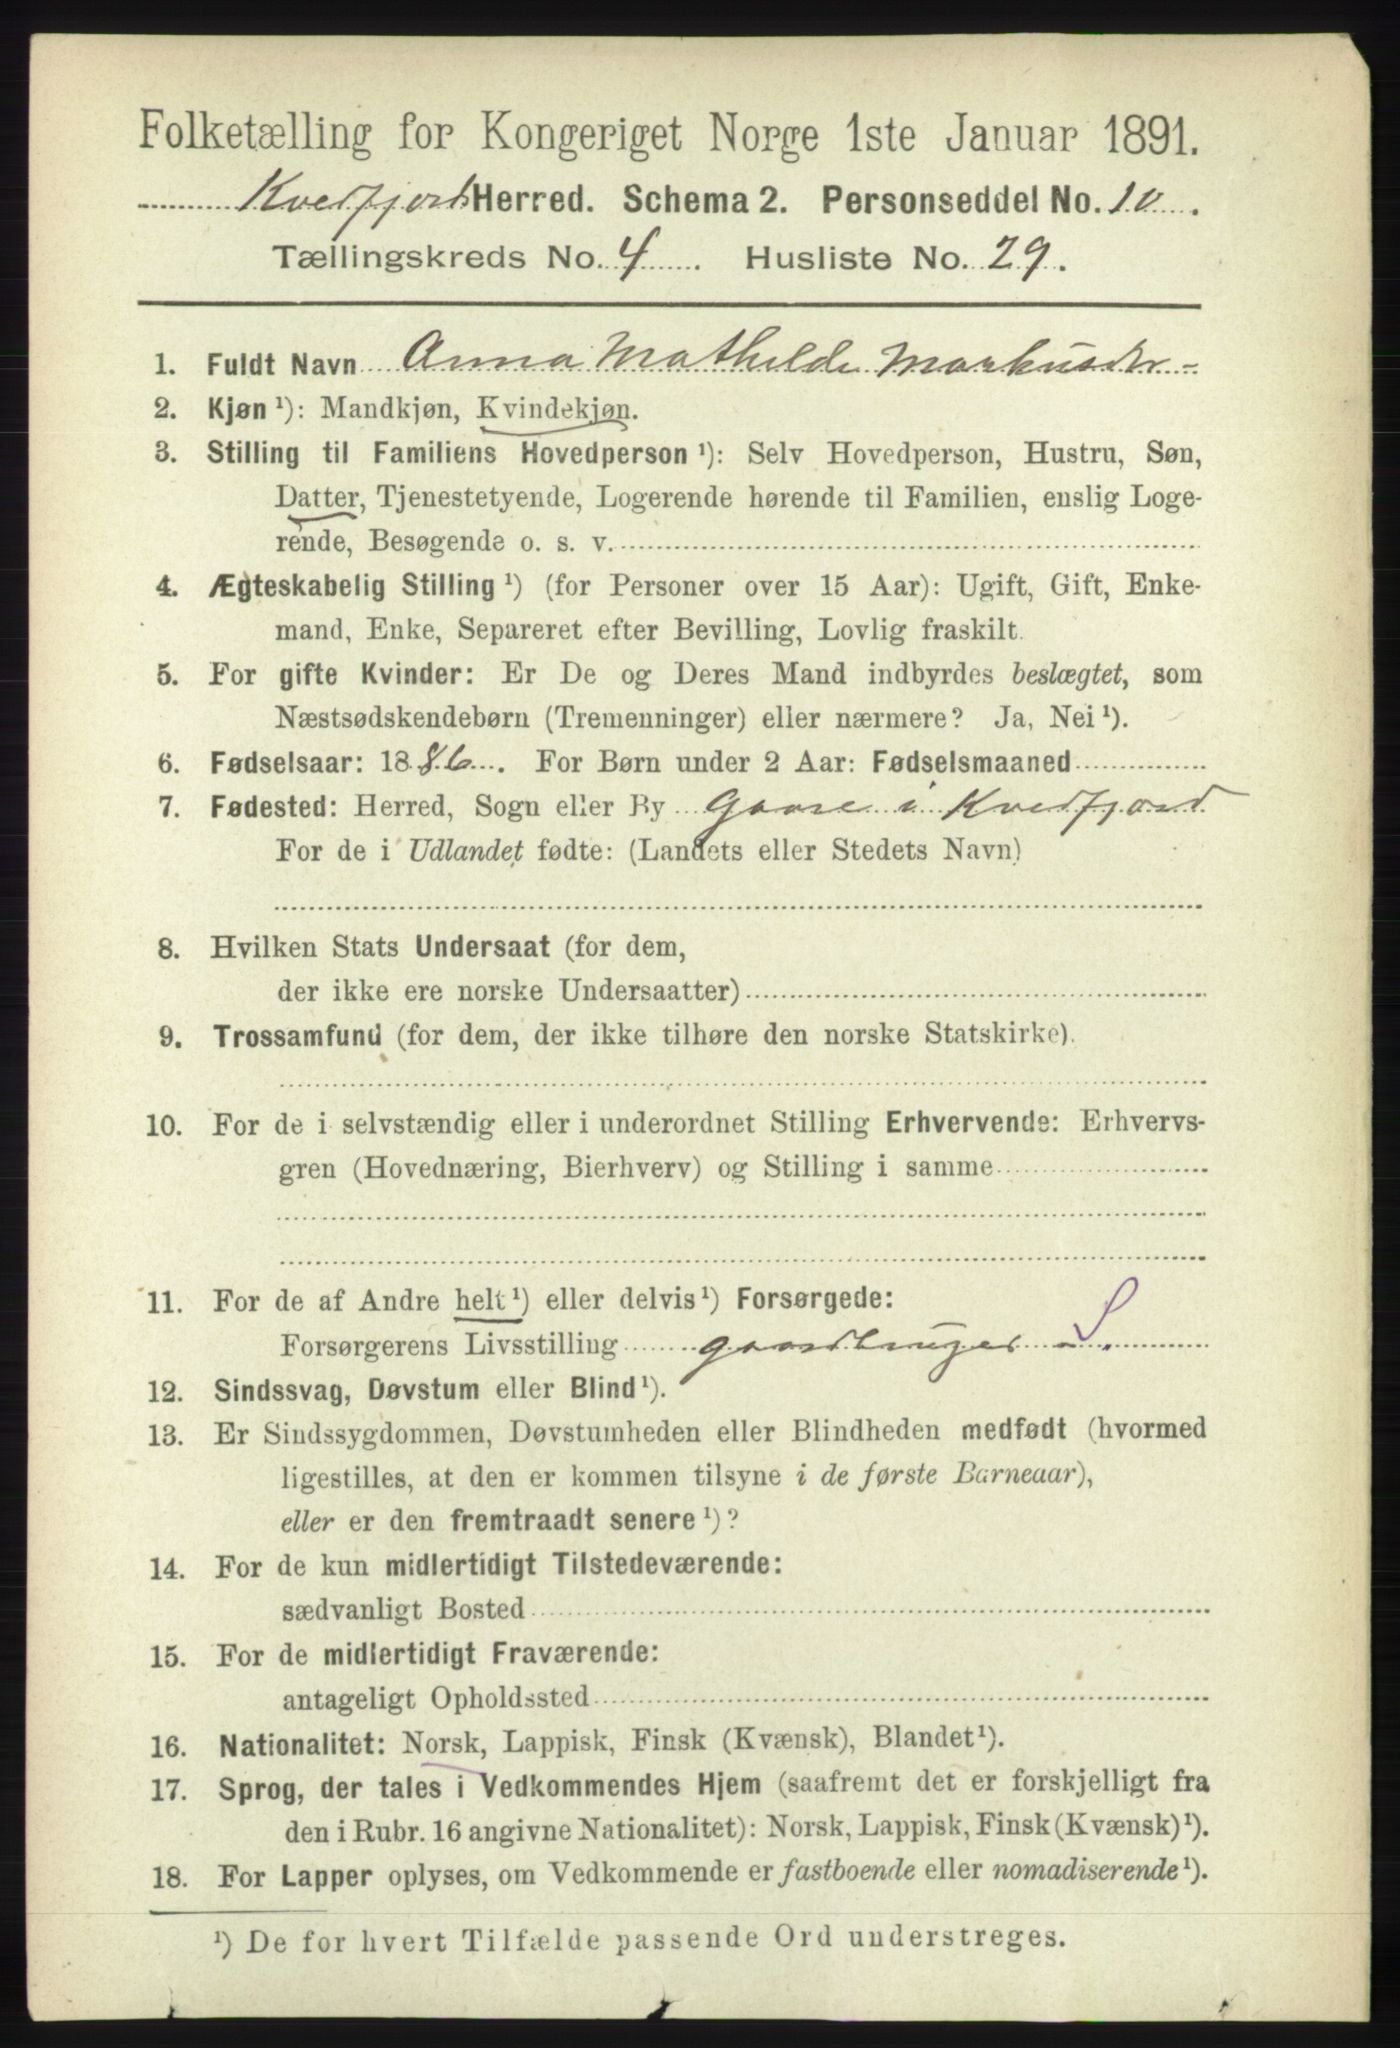 Folketælling for Kongeriget Norge 1ste Januar 1891.
Kvedfjord Herred. Schema 2. Personseddel No. 10.
Tællingskreds No. 4. Husliste No. 29.
1. Fuldt Navn Anna Mathilde Markusdtr-
2. Kjøn ¹): Mandkjøn, Kvindekjøn.
3. Stilling til Familiens Hovedperson ¹): Selv Hovedperson, Hustru, Søn,
Datter, Tjenestetyende, Logerende hørende til Familien, enslig Loge-
rende, Besøgende o. s. v.
4. Ægteskabelig Stilling ¹) (for Personer over 15 Aar): Ugift, Gift, Enke-
mand, Enke, Separeret efter Bevilling, Lovlig fraskilt.
5. For gifte Kvinder: Er De og Deres Mand indbyrdes beslægtet, som
Næstsødskendebørn (Tremenninger) eller nærmere? Ja, Nei ¹).
6. Fødselsaar: 1886. For Børn under 2 Aar: Fødselsmaaned
7. Fødested: Herred, Sogn eller By Gaare i Kvedfjord
For de i Udlandet fødte: (Landets eller Stedets Navn)
8. Hvilken Stats Undersaat (for dem,
der ikke ere norske Undersaatter)
9. Trossamfund (for dem, der ikke tilhøre den norske Statskirke).
10. For de i selvstændig eller i underordnet Stilling Erhvervende: Erhvervs-
gren (Hovednæring, Bierhverv) og Stilling i samme
11. For de af Andre helt ¹) eller delvis ¹) Forsørgede:
Forsørgerens Livsstilling gaardbruger - S.
12. Sindssvag, Døvstum eller Blind ¹).
13. Er Sindssygdommen, Døvstumheden eller Blindheden medfødt (hvormed
ligestilles, at den er kommen tilsyne i de første Barneaar),
eller er den fremtraadt senere ¹)?
14. For de kun midlertidigt Tilstedeværende:
sædvanligt Bosted
15. For de midlertidigt Fraværende:
antageligt Opholdssted
16. Nationalitet: Norsk, Lappisk, Finsk (Kvænsk), Blandet ¹).
17. Sprog, der tales i Vedkommendes Hjem (saafremt det er forskjelligt fra
den i Rubr. 16 angivne Nationalitet): Norsk, Lappisk, Finsk (Kvænsk) ¹).
18. For Lapper oplyses, om Vedkommende er fastboende eller nomadiserende ¹).
¹) De for hvert Tilfælde passende Ord understreges.